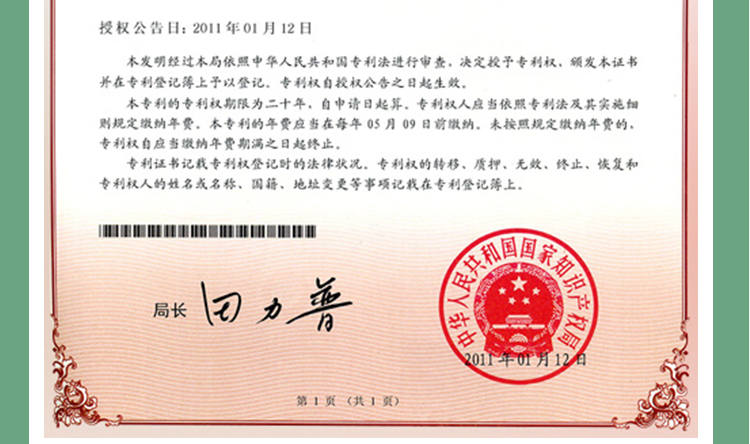 授权公告日：2011 年 01 月 12 日
本发明经过本局依照中华人民共和国专利法进行审查，决定授予专利权，颁发本证书
并在专利登记簿上予以登记。专利权自授权公告之日起生效。
本专利的专利权期限为二十年，自申请日起算。专利权人应当依照专利法及其实施细
则规定缴纳年费。本专利的年费应当在每年 05 月 09 日前缴纳。未按照规定缴纳年费的，
专利权自应当缴纳年费期满之日起终止。
专利证书记载专利权登记时的法律状况。专利权的转移、质押、无效、终止、恢复和
专利权人的姓名或名称、国籍、地址变更等事项记载在专利登记簿上。
局长 田力普
中华人民共和国国家知识产权局
2011 年 01 月 12 日
第 1 页 （共 1 页）